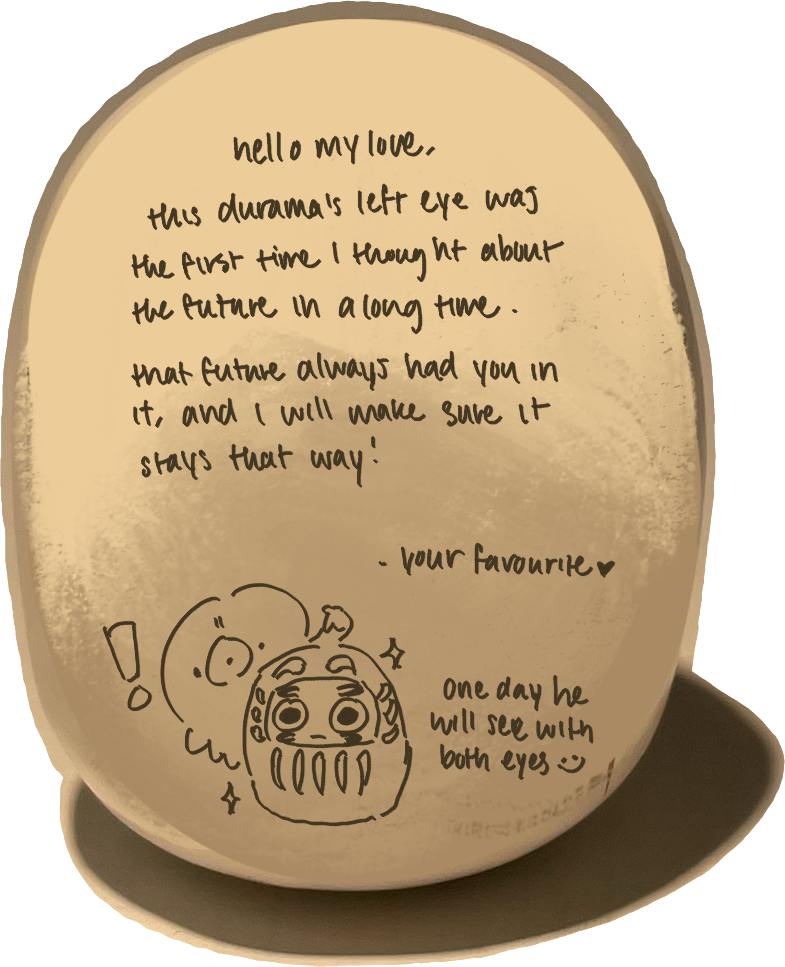 hello my love,
this durama's left eye was
the first time I thought about
the future in a long time.
that future always had you in
it, and I will make sure it
stays that way!
- your favourite♥
one day he
will see with
both eyes :)